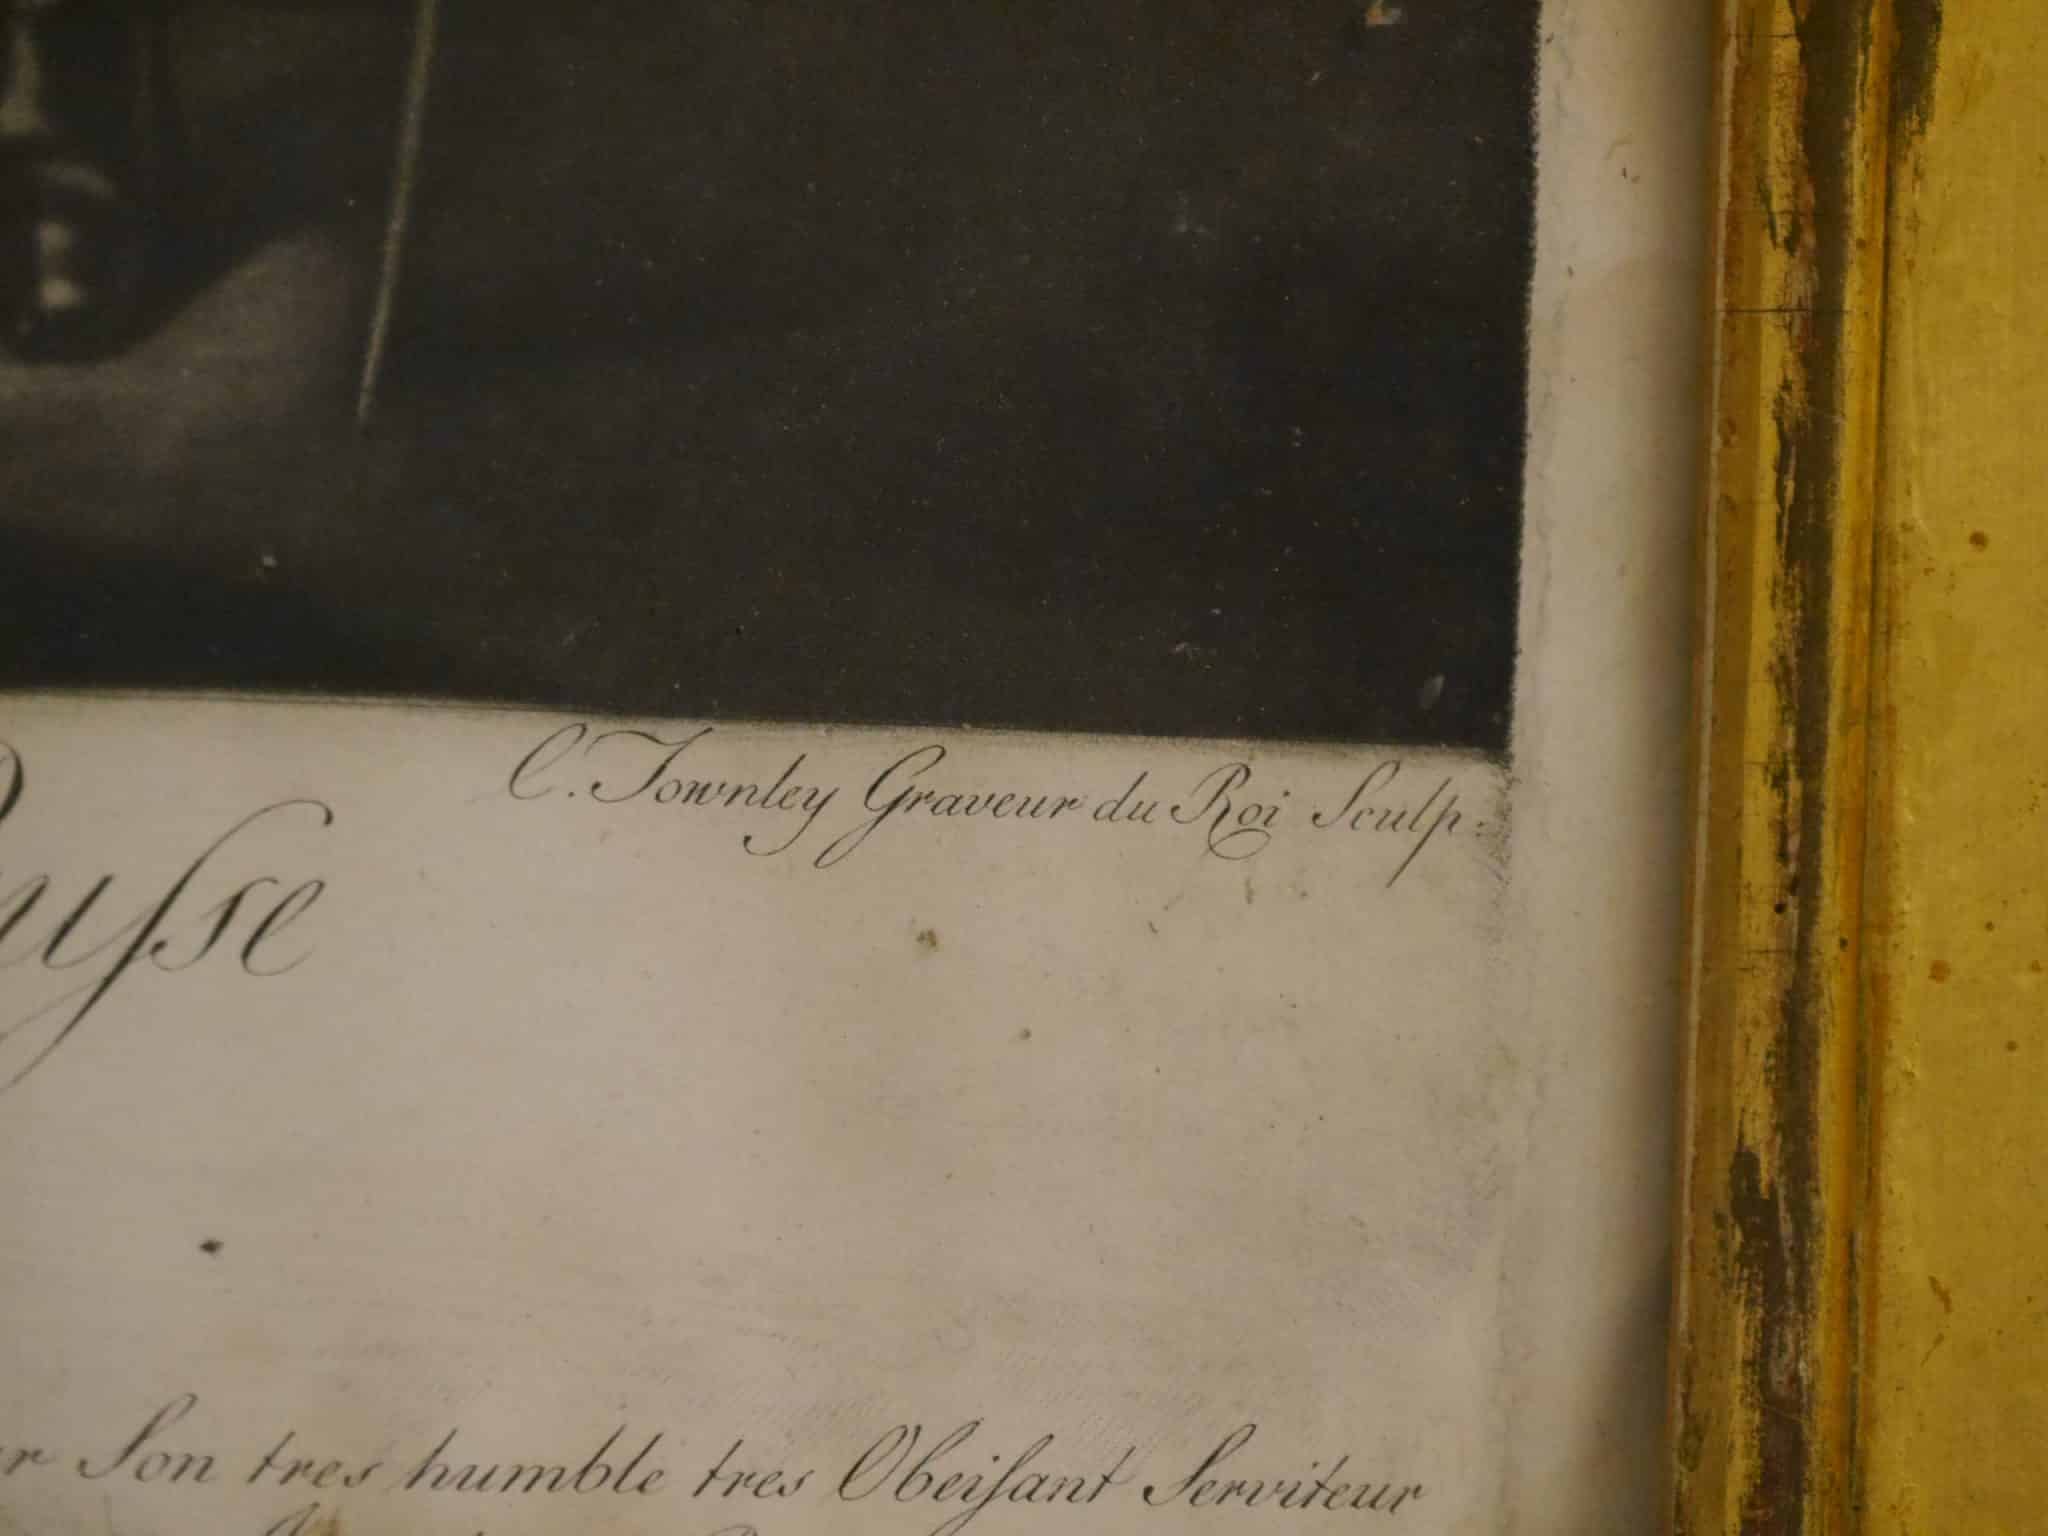 C. Townley Graveur du Roi Sculp.
Son tres humble tres Obeiſant Serviteur